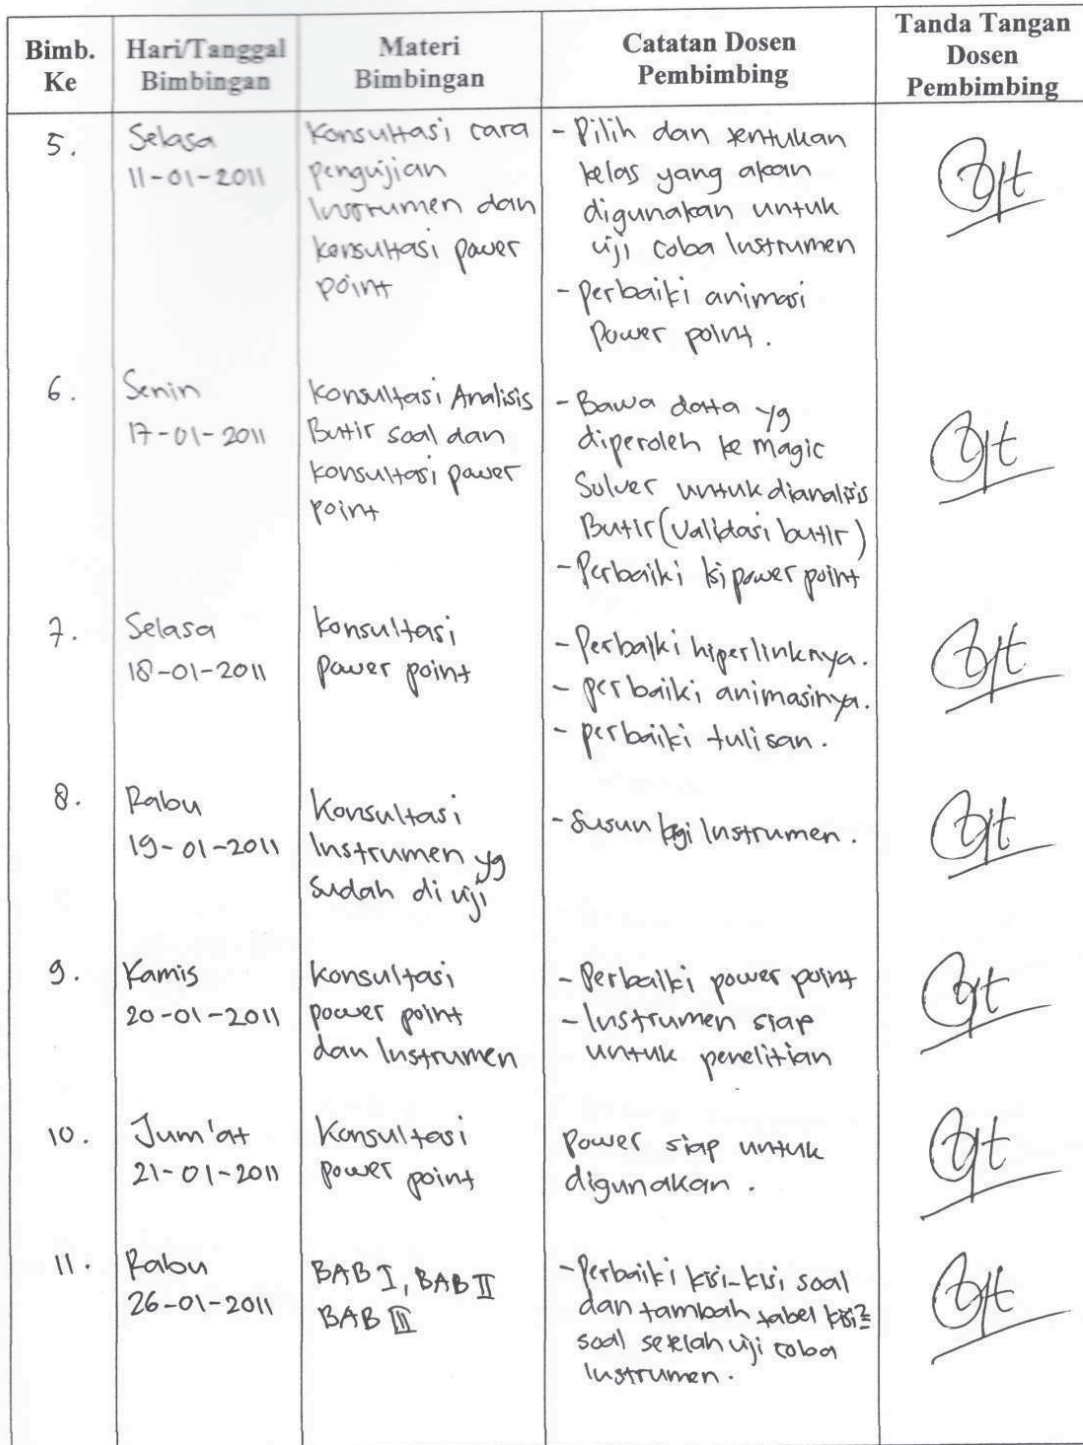 Bimb. Ke
Hari/Tanggal Bimbingan
Materi Bimbingan
Catatan Dosen Pembimbing
Tanda Tangan Dosen Pembimbing
5.
Selasa
11-01-2011
Konsultasi cara
pengujian
Instrumen dan
konsultasi power
point
- Pilih dan tentukan
kelas yang akan
digunakan untuk
uji coba Instrumen
- perbaiki animasi
Power point.
6.
Senin
17-01-2011
Konsultasi Analisis
Butir soal dan
konsultasi power
point
- Bawa data yg
diperoleh ke magic
Solver untuk dianalisis
Butir (validasi butir)
- Perbaiki isi power point
7.
Selasa
18-01-2011
Konsultasi
power point
- Perbaiki hiperlinknya.
- perbaiki animasinya.
- perbaiki tulisan.
8.
Rabu
19-01-2011
Konsultasi
Instrumen yg
sudah di uji
- Susun lagi Instrumen.
9.
Kamis
20-01-2011
Konsultasi
power point
dan Instrumen
- Perbaiki power point
- Instrumen siap
untuk penelitian
10.
Jum'at
21-01-2011
Konsultasi
power point
Power siap untuk
digunakan.
11.
Rabu
26-01-2011
BAB I, BAB II
BAB III
- Perbaiki kisi-kisi soal
dan tambah tabel kisi2
soal setelah uji coba
Instrumen.